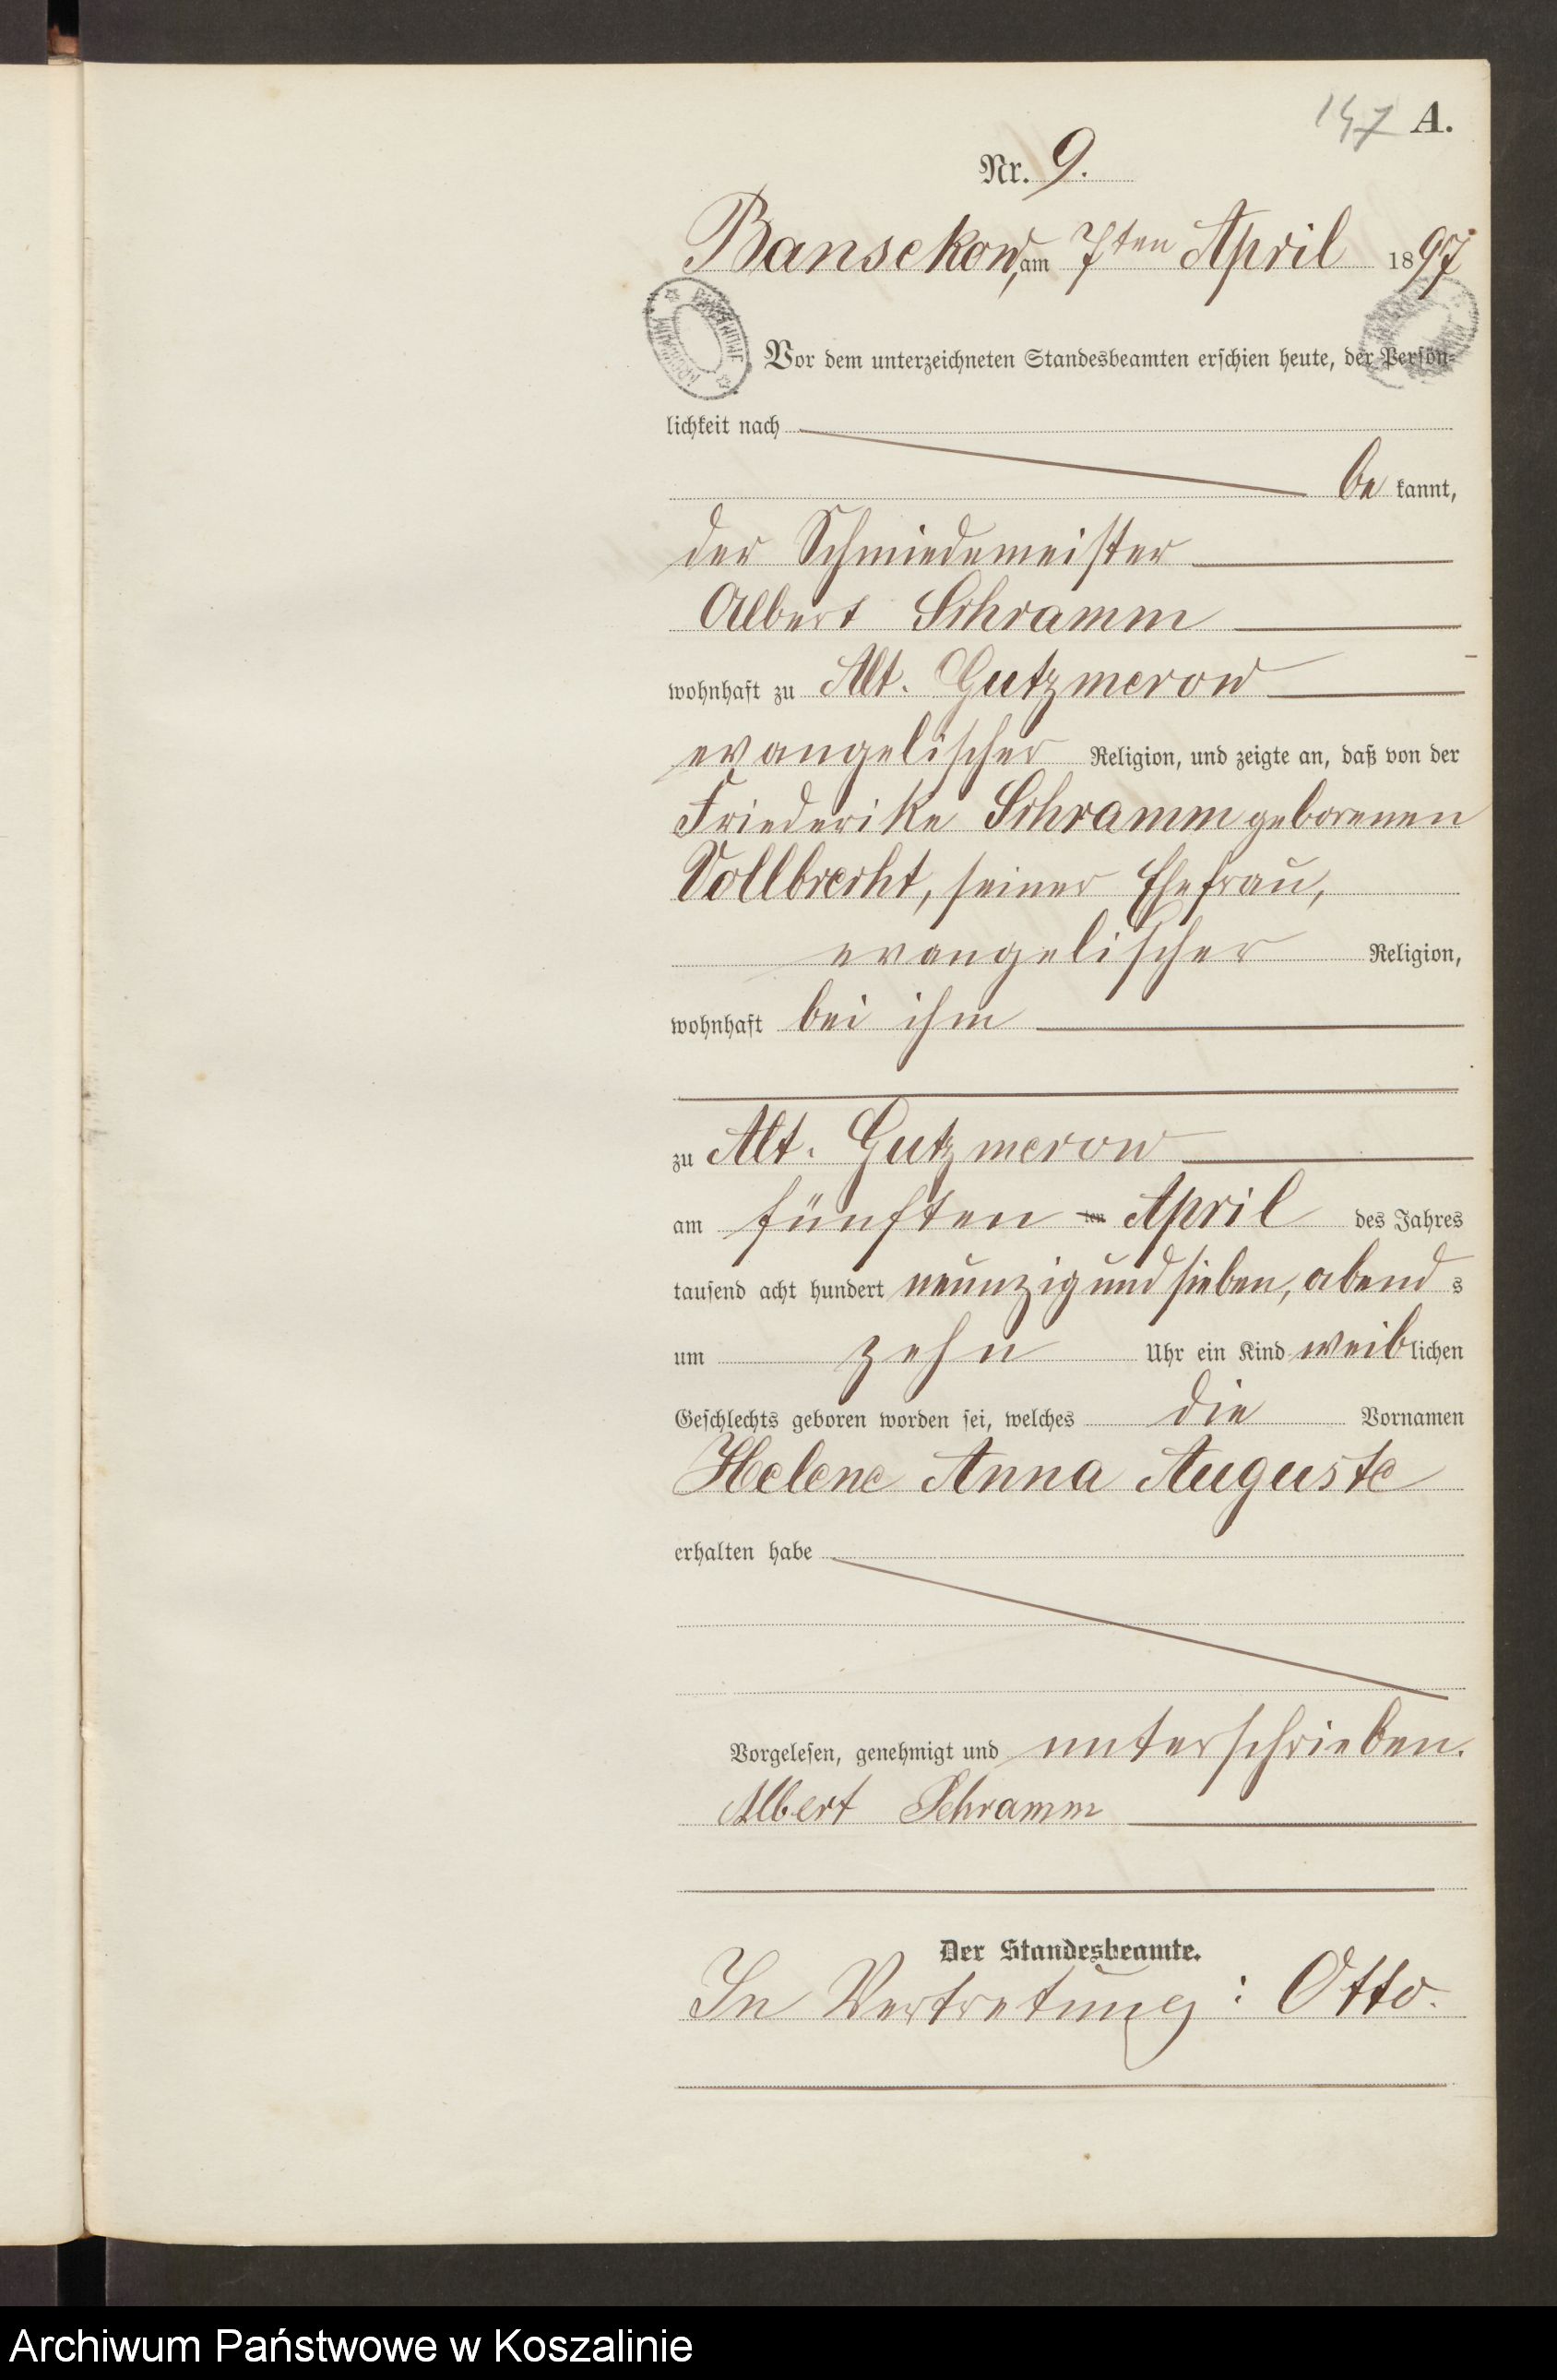 147 A.
Nr. 9.
Bansekow, am 7ten April 1897
Vor dem unterzeichneten Standesbeamten erschien heute, der Persön-
lichkeit nach
be kannt,
der Schmiedemeister
Albert Schramm
wohnhaft zu Alt. Gutzmerow
evangelischer Religion, und zeigte an, daß von der
Friederike Schramm geborenen
Vollbrecht, seiner Ehefrau,
evangelischer Religion,
wohnhaft bei ihm
zu Alt. Gutzmerow
am fünften ten April des Jahres
tausend acht hundert neunzig und sieben, abend s
um zehn Uhr ein Kind weiblichen
Geschlechts geboren worden sei, welches die Vornamen
Helene Anna Auguste
erhalten habe
Vorgelesen, genehmigt und unterschrieben.
Albert Schramm
Der Standesbeamte.
In Vertretung: Otto.
Archiwum Państwowe w Koszalinie